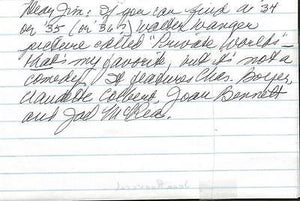 Dear Jim: If you can find a '34
or '35 (or '36?) Walter Wanger
picture called "Private Worlds" -
that's my favorite, but it's not a
comedy. It features Chas. Boyer,
Claudette Colbert, Joan Bennett
and Joel McCrea.